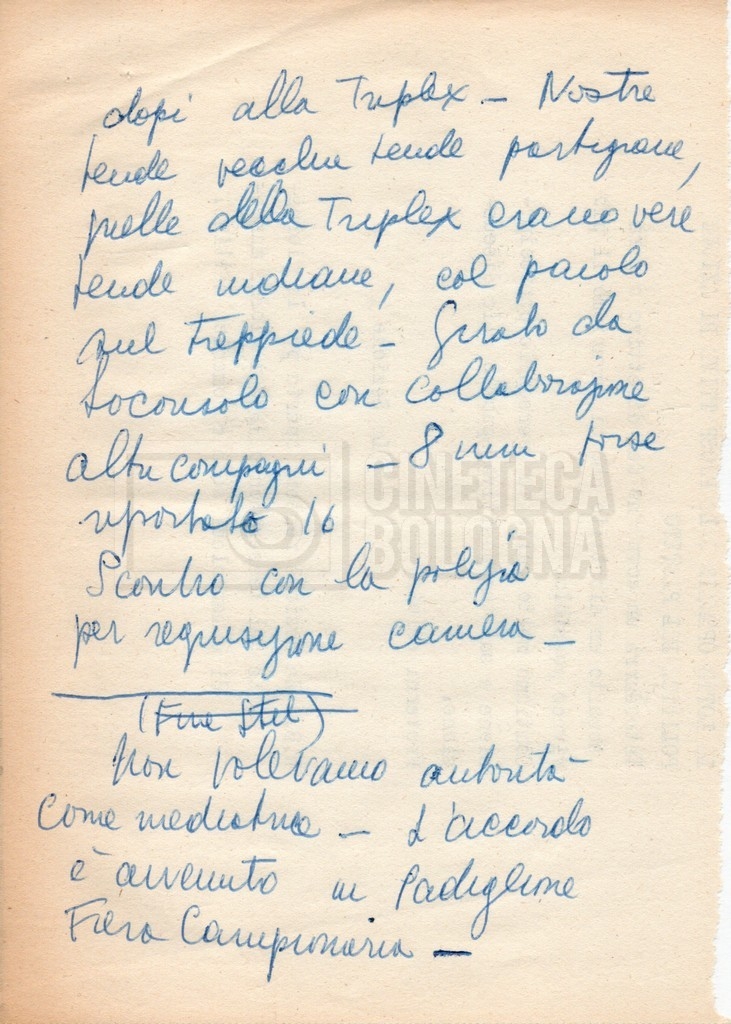 dopi alla Triplex - Nostre
tende vecchie tende partigiane,
quelle della Triplex erano vere
tende indiane, col paiolo
sul treppiede - Girato da
Loconsolo con collaborazione
altri compagni - 8 mm forse
riportato 16
CINETECA
BOLOGNA
Scontro con la polizia
per requisizione camera -
(Fine Stel)
Non volevamo autorità
come mediatrice - L'accordo
è avvenuto in Padiglione
Fiera Campionaria -